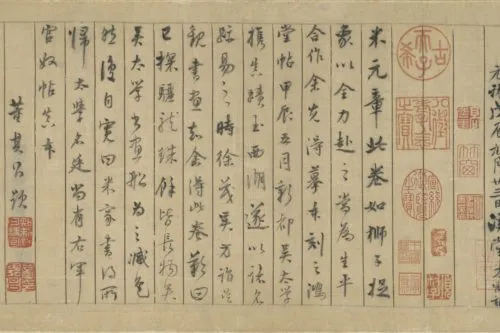 元祐戊辰九月廿三日溪堂
古希天子
米元章此卷如獅子捉
象以全力赴之當為生平
合作余先得摹本刻之鴻
堂帖甲辰五月新都吳太學
攜真蹟至西湖遂以諸名
跡易之時徐茂吳方詣吳
觀書畫知余得此卷歎曰
已探驪龍珠餘皆長物矣
吳太學書畫船為之減色
然復自寬曰米家書得所
歸太學名廷尚有右軍
官奴帖真本
董其昌題